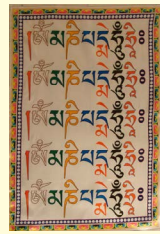 ། ཨོཾ མ ཎི པ དྨེ ཧཱུྃ ཧྲཱིཿ
། ཨོཾ མ ཎི པ དྨེ ཧཱུྃ ཧྲཱིཿ
། ཨོཾ མ ཎི པ དྨེ ཧཱུྃ ཧྲཱིཿ
། ཨོཾ མ ཎི པ དྨེ ཧཱུྃ ཧྲཱིཿ
། ཨོཾ མ ཎི པ དྨེ ཧཱུྃ ཧྲཱིཿ